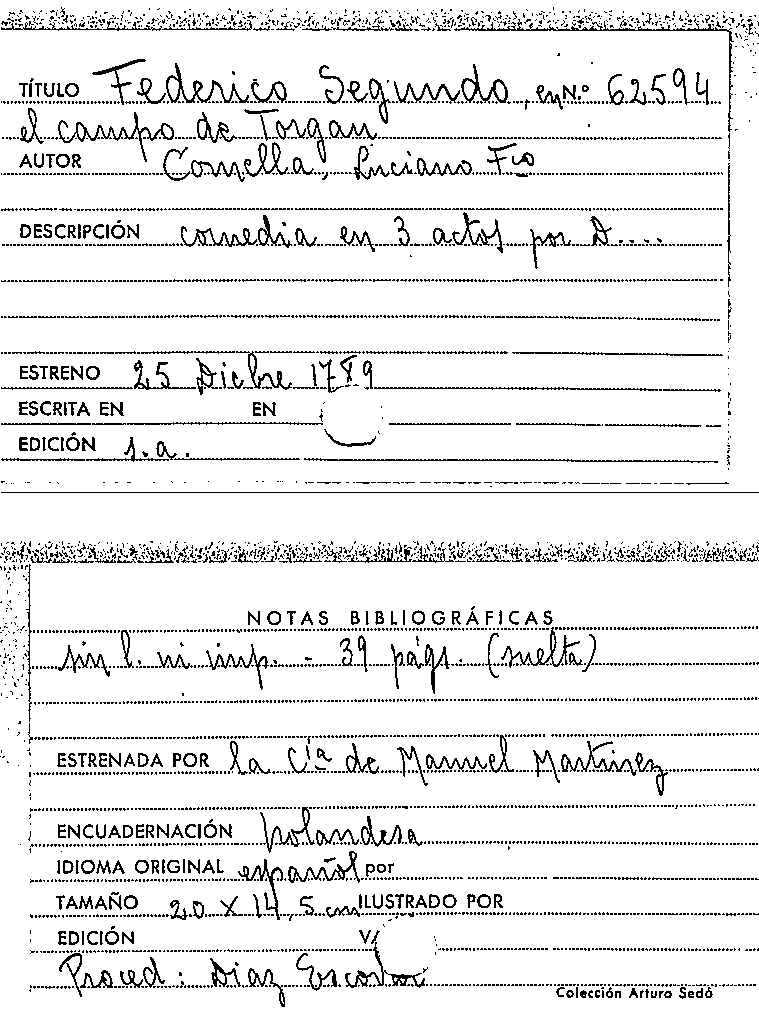 TÍTULO Federico Segundo, en N.º 62594
el campo de Torgau
AUTOR Comella, Luciano Fco
DESCRIPCIÓN comedia en 3 actos por D....
ESTRENO 25 Dicbre 1789
ESCRITA EN EN
EDICIÓN s.a.
NOTAS BIBLIOGRÁFICAS
sin l. ni imp. - 39 págs. (suelta)
ESTRENADA POR la Cía de Manuel Martínez
ENCUADERNACIÓN holandesa
IDIOMA ORIGINAL español por
TAMAÑO 20 X 14,5 cm ILUSTRADO POR
EDICIÓN V/
Proced: Diaz Escobar
Colección Arturo Sedó